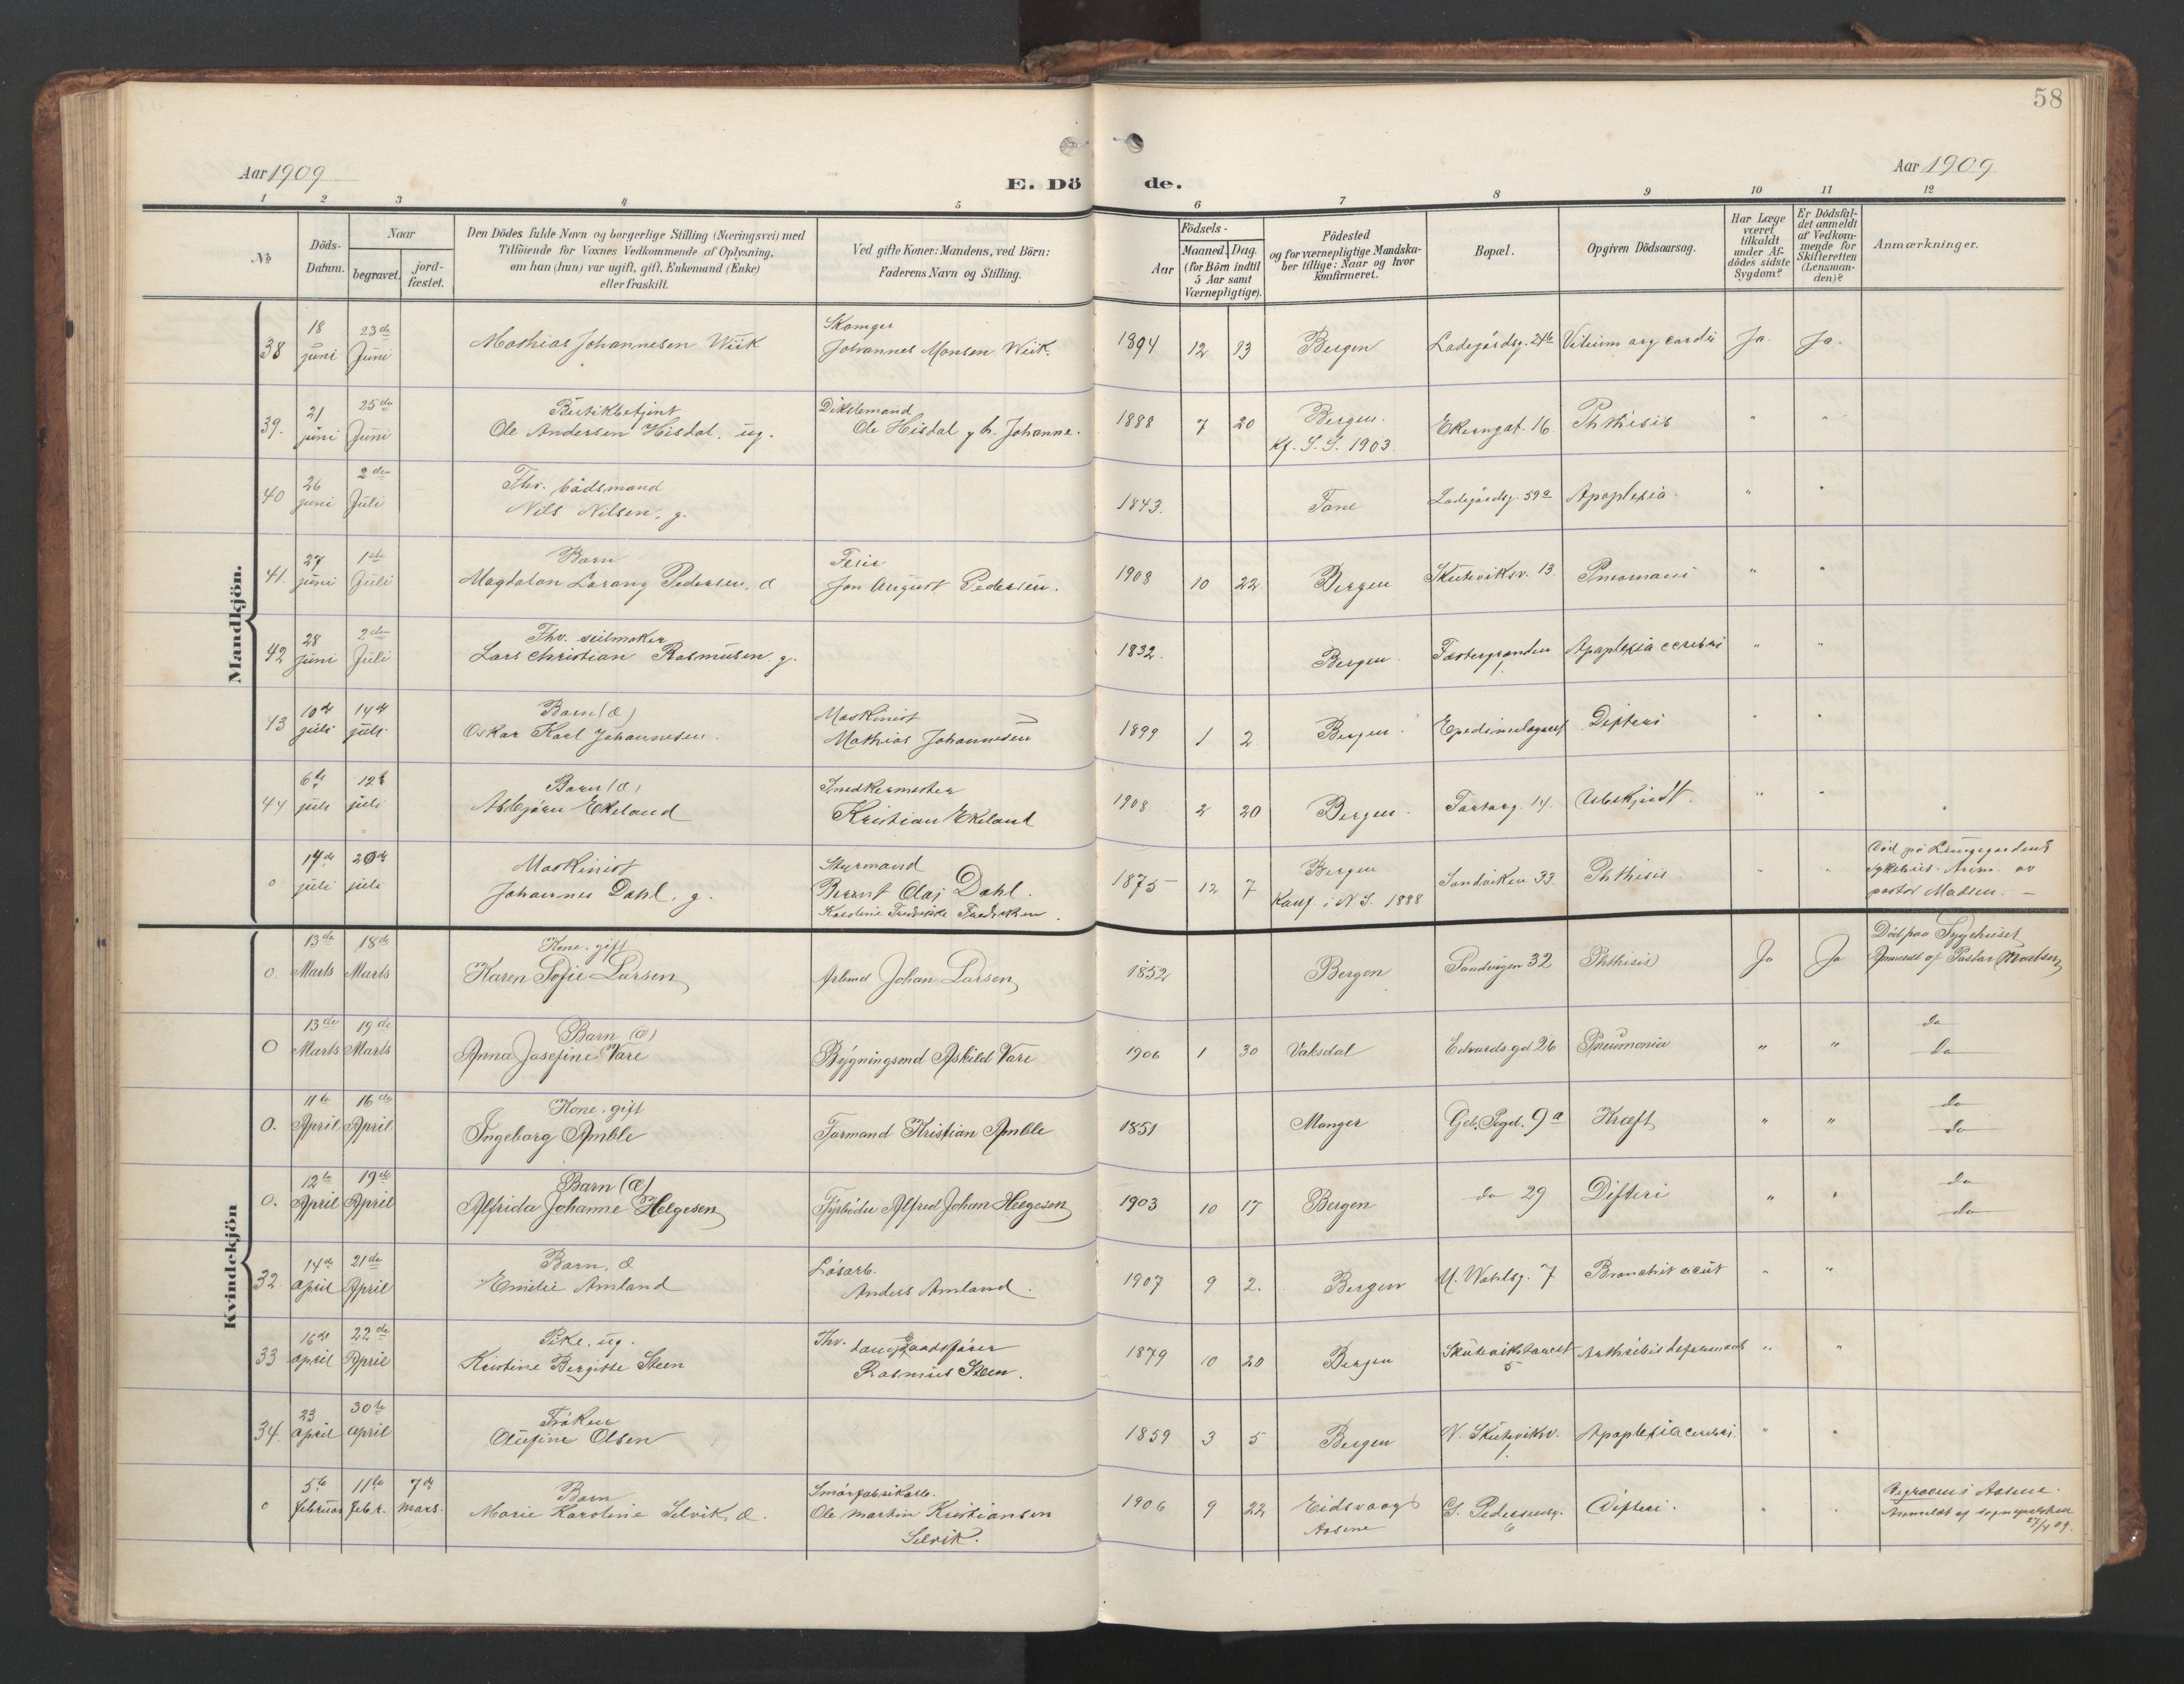 58
Aar 1909
E. Dö de.
Aar 1909
1 2 3 4 5 6 7 8 9 10 11 12
No
Döds-
Datum.
Naar
begravet.
jord-
fæstet.
Den Dödes fulde Navn og borgerlige Stilling (Næringsvei) med
Tilföiende for Voxnes Vedkommende af Oplysning,
om han (hun) var ugift, gift, Enkemand (Enke)
eller fraskilt.
Ved gifte Koner: Mandens, ved Börn:
Faderens Navn og Stilling.
Födsels-
Aar
Maaned. Dag.
(for Börn indtil
5 Aar samt
Værnepligtige).
Födested
og for værnepligtige Mandska-
ber tillige: Naar og hvor
konfirmeret.
Bopæl.
Opgiven Dödsaarsag.
Har Læge
været
tilkaldt
under Af-
dödes sidste
Sygdom?
Er Dödsfal-
det anmeldt
af Vedkom-
mende for
Skifteretten
(Lensman-
den)?
Anmærkninger.
Mandkjön.
38 18 juni 23de Juni Mathias Johannesen Wiik
Johannes Monsen Wiik. 1894 12 13 Bergen Ladegårdsg. 24b Vitium org cordis Ja. Ja.
39. 21 juni 25de Juni Butikbetjent
Ole Andersen Hisdal, ug.
Ole Hisdal g h. Johanne. 1888 7 20 Bergen.
Kf. S. S. 1903. Ekrengat. 16. Phthisis " "
40 26 juni 2den Juli Thv. bådsmand
Nils Nilsen, g. 1843. Fane Ladegårdsg. 59a Apoplexia. " "
41. 27 juni 1ste Juli Barn
Magdalon Pedersen, æ
Feier
Jon August Pedersen. 1908 10 22 Bergen Skuteviksv. 13. " "
42 28 juni 2den Juli Thv. seilmaker
Lars Christian Rasmusen. g. 1832. Bergen. 1 Apoplexia cerebri " "
43 10de juli 14de juli Barn (æ)
Oskar Karl Johannesen.
Maskinist
Mathias Johannesen 1899 1 2 Bergen. Difteri " "
44 6te juli 12te juli Barn (æ)
Asbjørn Ekeland
Snedkermester
Kristian Ekeland 1908 2 20 Bergen. 14. Ubeskjedt. " "
0 14de juli 20de juli Maskinist
Johannes Dahl. g.
Styrmand
Bernt Olaj Dahl. 1875 12 7 Bergen
Konf. i N. S. 1888 Sandviken 33. Phthisis " "
Død på Lungegaardens
sykehus. Anm. av
pastor Madsen. —
Kvindekjön
0. 13de Marts 18de Marts Kone. gift
Karen Sofie Larsen
Arbmd Johan Larsen 1852 Bergen Sandvigen 32 Phthisis Ja Ja
Død paa Sygehuset
Anmeldt af Pastor Madsen
0 13de Marts 19de Marts Barn (æ)
Anna Josefine Vare
Bygningsmd Askild Vare 1906 1 30 Vaksdal Edvardsgd 26 Pneumonia " " do
do
0. 11te April 16de April Kone. gift
Ingeborg Amble
Formand Kristian Amble 1851 Manger 9a Kræft " " do
do
0. 12te April 19de April Barn (æ)
Alfrida Johanne Helgesen
Fyrbøder Alfred Johan Helgesen 1903 10 17 Bergen do 29 Difteri " " do
do
32. 14de april 21de April Barn, æ
Emilie Amland
Løsarb.
Anders Amland. 1907 9 2. Bergen M. Wahlsg. 7 Bronchit acut " "
33 16de april 22de April Pike. ug.
Kristine Bergitte Steen
Thv.
Rasmus Steen. 1879 10 20 Bergen
5 Arthritis deformans " "
34. 23 april 30te april Frøken
Olufine Olsen 1859 3 5 Bergen N. Skuteviksv.
1. Apoplexia cerebri. " "
0 5te februar 11te febr. 7de mars. Barn
Marie Karoline Selvik, æ.
Smørfabrikarb.
Ole Martin Kristiansen
Selvik. 1906 9 22 Eidsvaag
Aasene G. Pedersensg.
6 Difteri. " "
Begravet i Aasene.
Anmeldt af sognepresten
27/4 09.